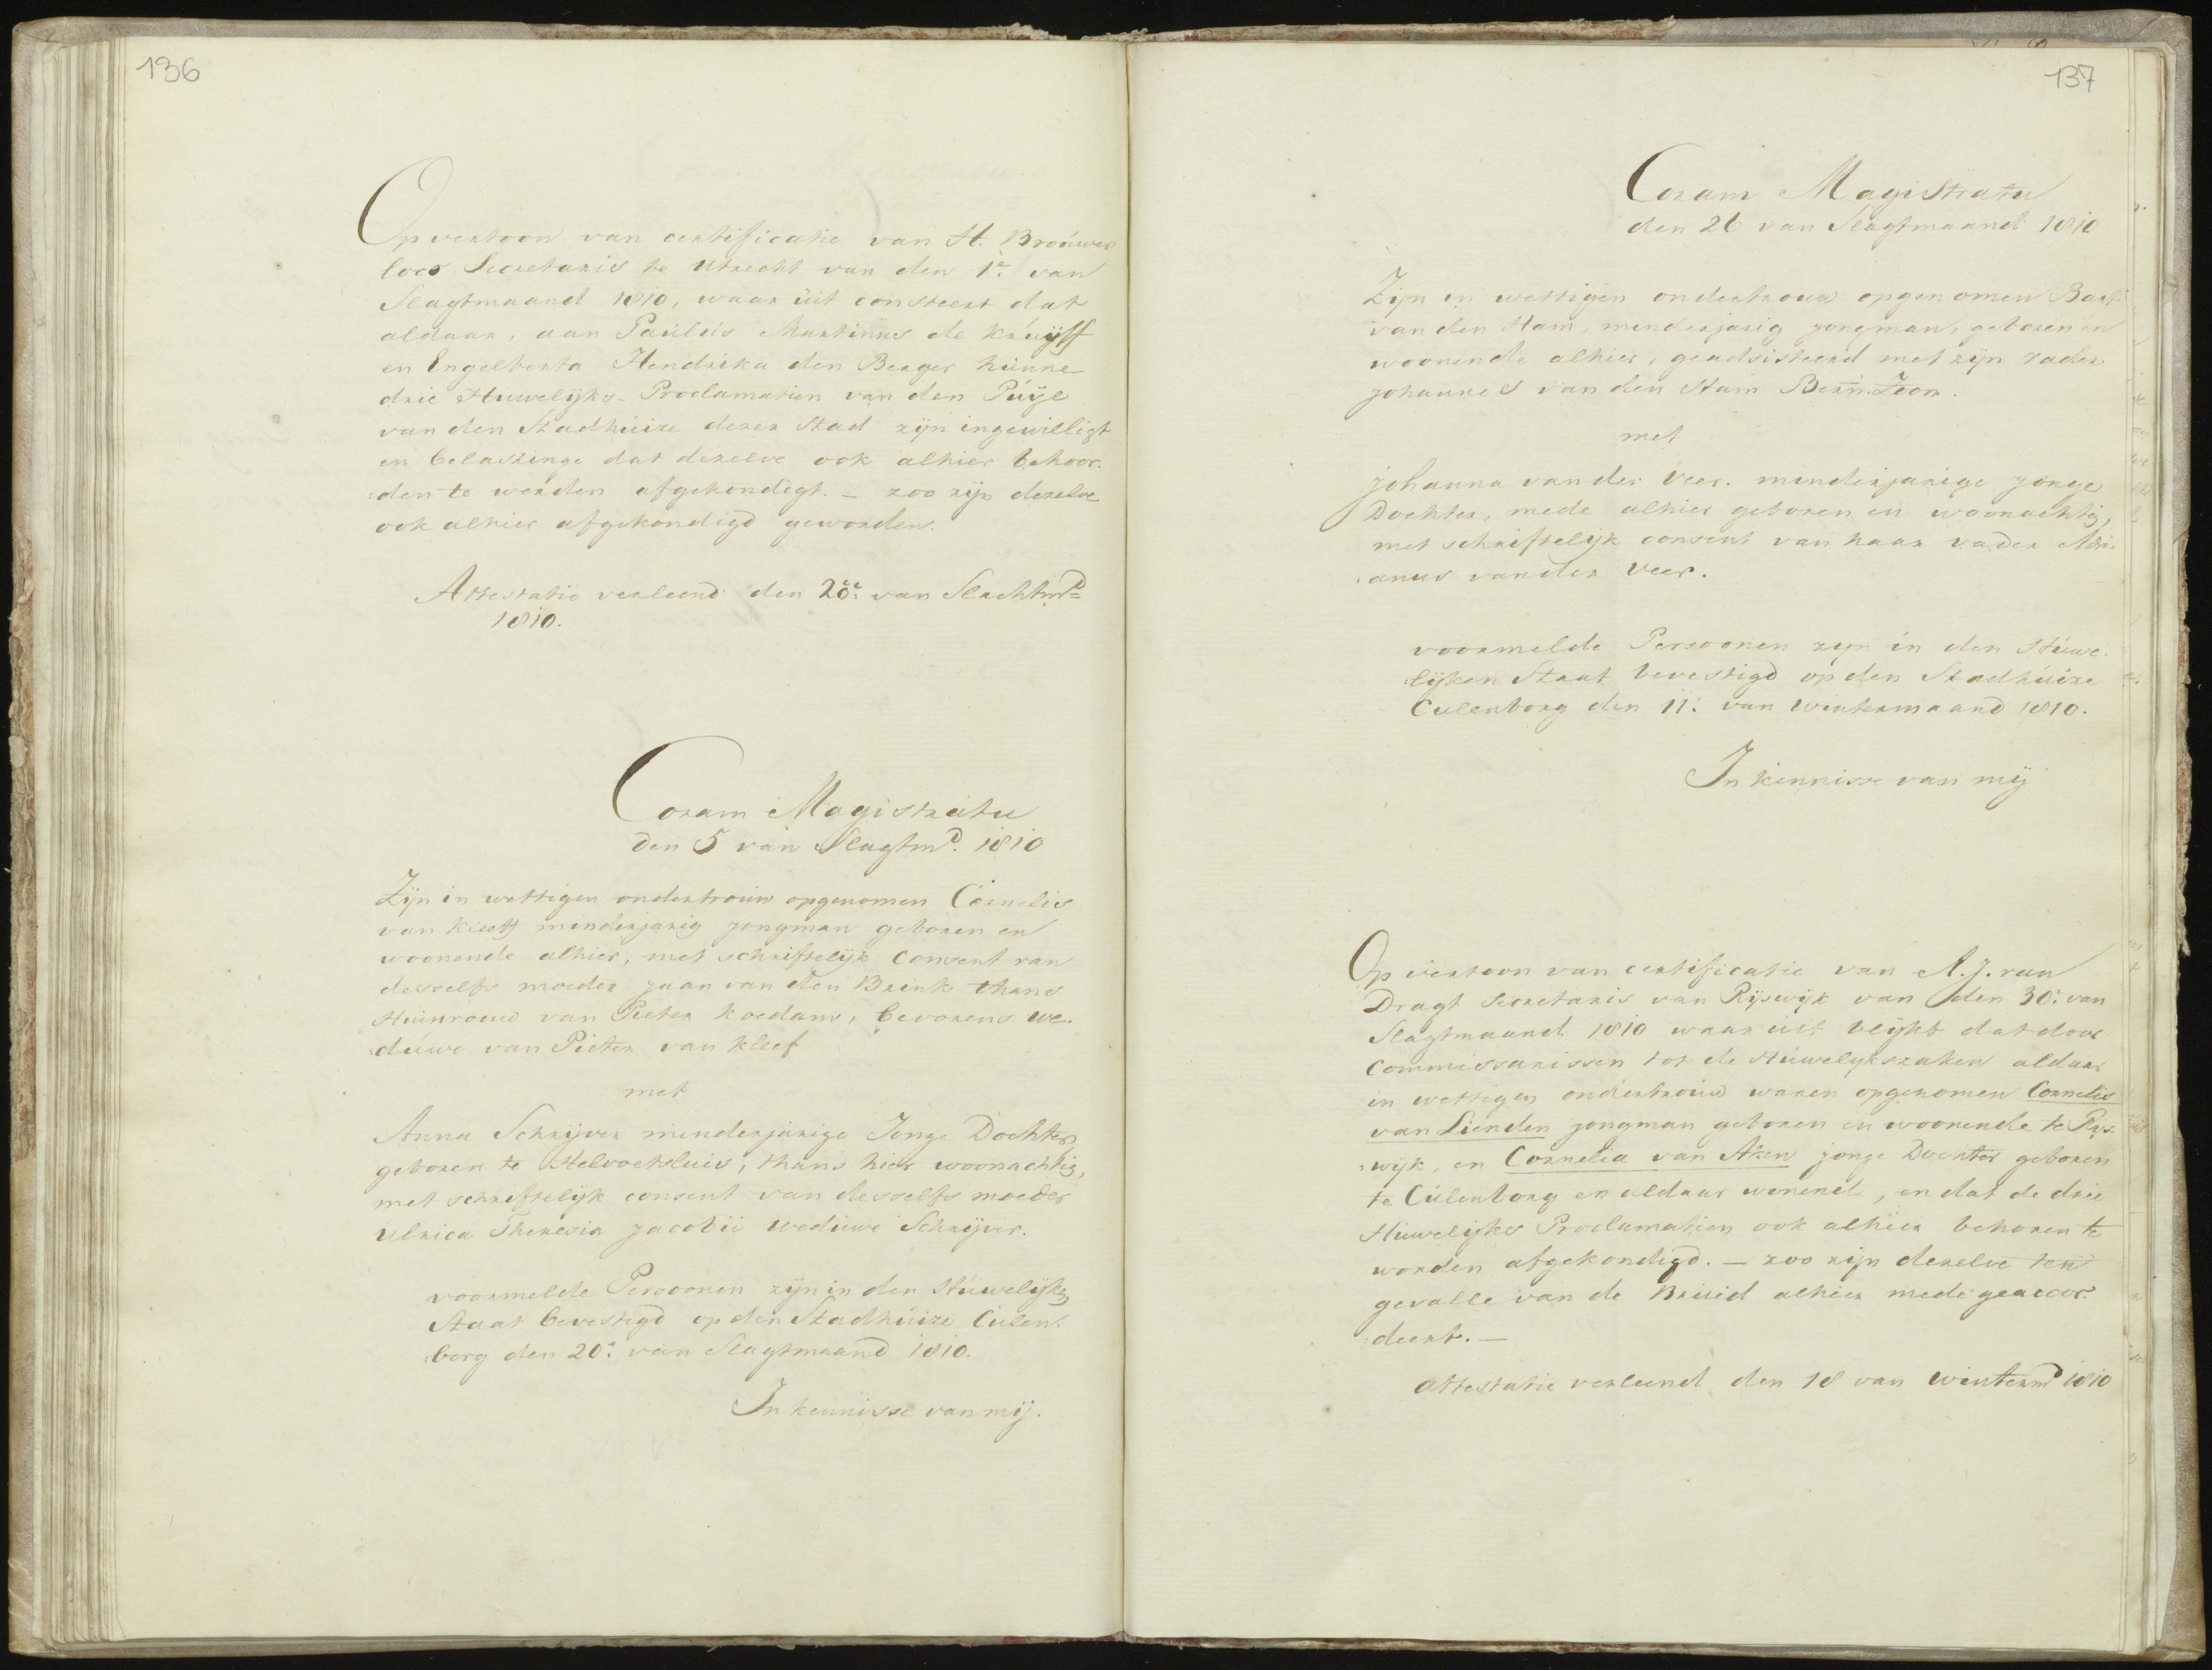 136
Op vertoon van certificatie van H. Brouwer
loco Secretaris te Utrecht van den 1e. van
Slagtmaand 1810, waar uit consteert dat
aldaar, aan Paulus Martinus de Kruijff
en Engelberta Hendrika den Berger hunne
drie Huwelijks-Proclamatien van den Puije
van den Stadhuize dezer Stad zijn ingewilligt
en belastinge dat dezelve ook alhier behoor-
:den te werden afgekondigt. – zoo zijn dezelve
ook alhier afgekondigd geworden.
Attestatie verleend den 20e. van Slachtmd
1810.
Coram Magistratu
den 5 van Slagtmd. 1810
Zijn in wettigen ondertrouw opgenomen Cornelis
van Kleeff minderjarig jongman geboren en
woonende alhier, met schriftelijk Consent van
desselfs moeder Jaan van den Brink thans
Huisvrouw van Pieter Koedam, bevorens we-
:duwe van Pieter van Kleef
met
Anna Schrijver minderjarige Jonge Dochter
geboren te Helvoetsluis, thans hier woonachtig,
met schriftelijk consent van desselfs moeder
Ulrica Theresia Jacobii weduwe Schrijver.
voormelde Persoonen zijn in den Huwelijken
Staat bevestigd op den Stadhuize Culen-
:borg den 20e. van Slagtmaand 1810.
In kennisse van mij.
137
Coram Magistratu
den 26 van Slagtmaand 1810
Zijn in wettigen ondertrouw opgenomen Bart
van den Ham, minderjarig jongman, geboren en
woonende alhier, geadsisteerd met zijn vader
Johannes van den Ham Bern: Zoon.
met
Johanna van der Veer. minderjarige jonge
Dochter, mede alhier geboren en woonachtig,
met schriftelijk consent van haar vader Adri-
:anus van der Veer.
voormelde Persoonen zijn in den Huwe-
:lijken Staat bevestigd op den Stadhuize
Culenborg den 11e. van Wintermaand 1810.
In kennisse van mij
Op vertoon van certificatie van A. J. van
Dragt Secretaris van Rijswijk van den 30e. van
Slagtmaand 1810 waar uit blijkt dat door
Commissarissen tot de Huwelijkszaken aldaar
in wettigen ondertrouw waren opgenomen Cornelis
van Lienden jongman geboren en woonende te Rijs-
:wijk, en Cornelia van Aken jonge Dochter geboren
te Culenborg en aldaar wonend, en dat de drie
Huwelijks Proclamatien ook alhier behoren te
worden afgekondigd. – zoo zijn dezelve ten
gevalle van de Bruid alhier mede geaccor-
:deert. –
attestatie verleend den 18 van Wintermd 1810